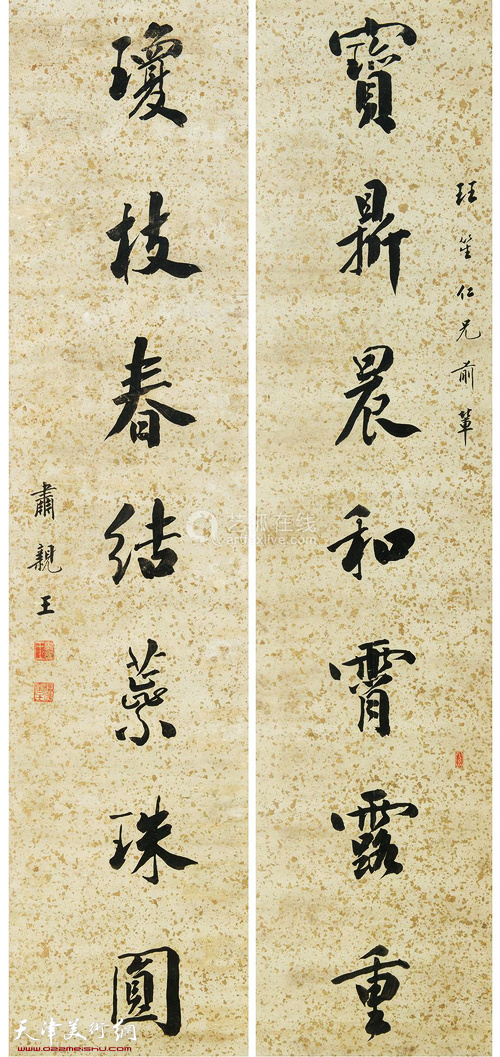 珏笙仁兄前輩
寶鼎晨和霄露重
瓊枝春結蕊珠圓
肅親王
天津美術網
www.022meishu.com